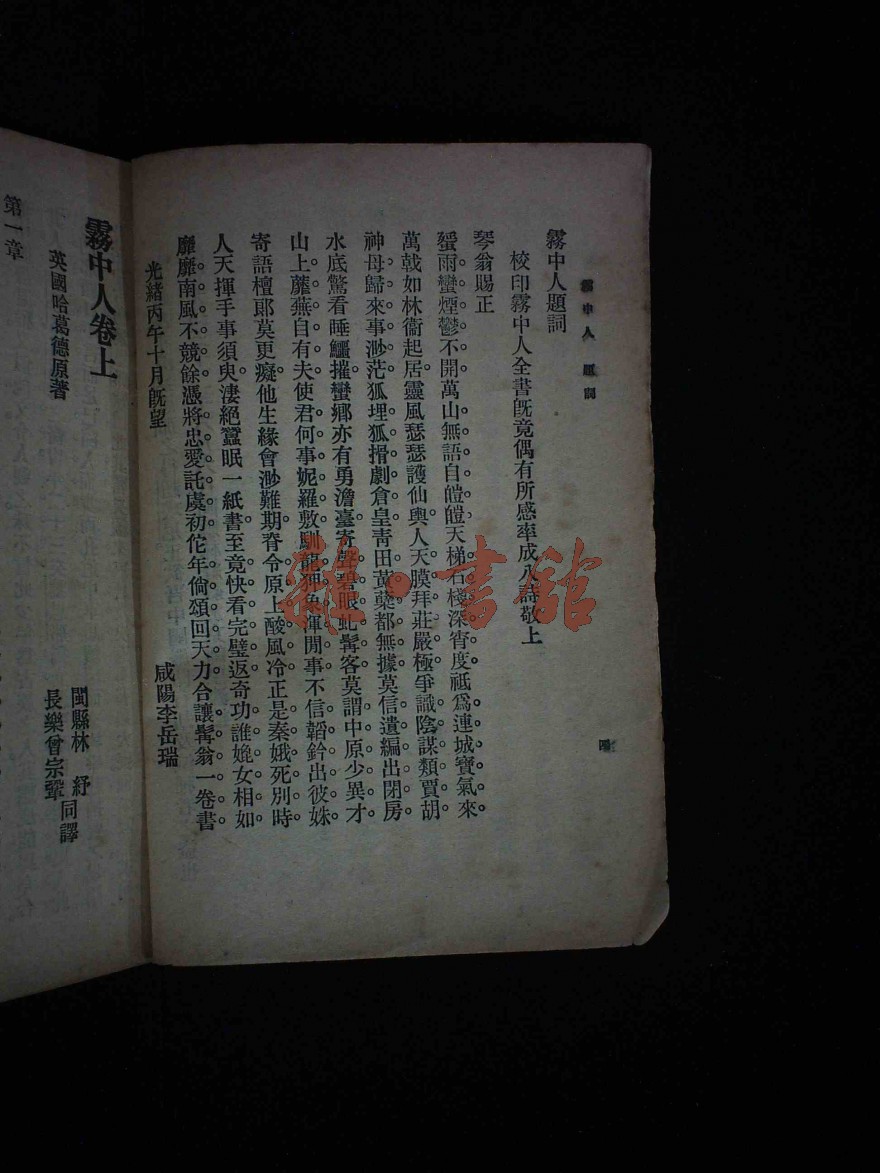 霧中人 題詞
四
霧中人題詞
校印霧中人全書既竟偶有所感率成八詩敬上
琴翁賜正
蜑雨蠻煙鬱不開萬山無語自皚皚天梯石棧深宵度祗爲連城寶氣來。
萬戟如林衞起居靈風瑟瑟護仙輿人天膜拜莊嚴極爭識陰謀類賈胡。
神母歸來事渺茫狐埋狐搰劇倉皇靑田黃蘗都無據莫信遺編出閉房。
水底驚看睡鱷摧蠻鄉亦有勇澹臺寄聲碧眼虬髯客莫謂中原少異才。
山上蘼蕪自有夫使君何事妮羅敷馴龍狎象渾閒事不信韜鈐出彼姝。
寄語檀郞莫更癡他生緣會渺難期脊令原上酸風冷正是秦娥死別時。
人天揮手事須臾淒絕蠶眠一紙書至竟快看完璧返奇功誰媲女相如。
靡靡南風不競餘憑將忠愛託虞初佗年倘頌回天力合讓髯翁一卷書。
光緖丙午十月旣望
咸陽李岳瑞
霧中人卷上
英國哈葛德原著
閩縣林 紓
長樂曾宗鞏
同譯
第一章
雜·書館